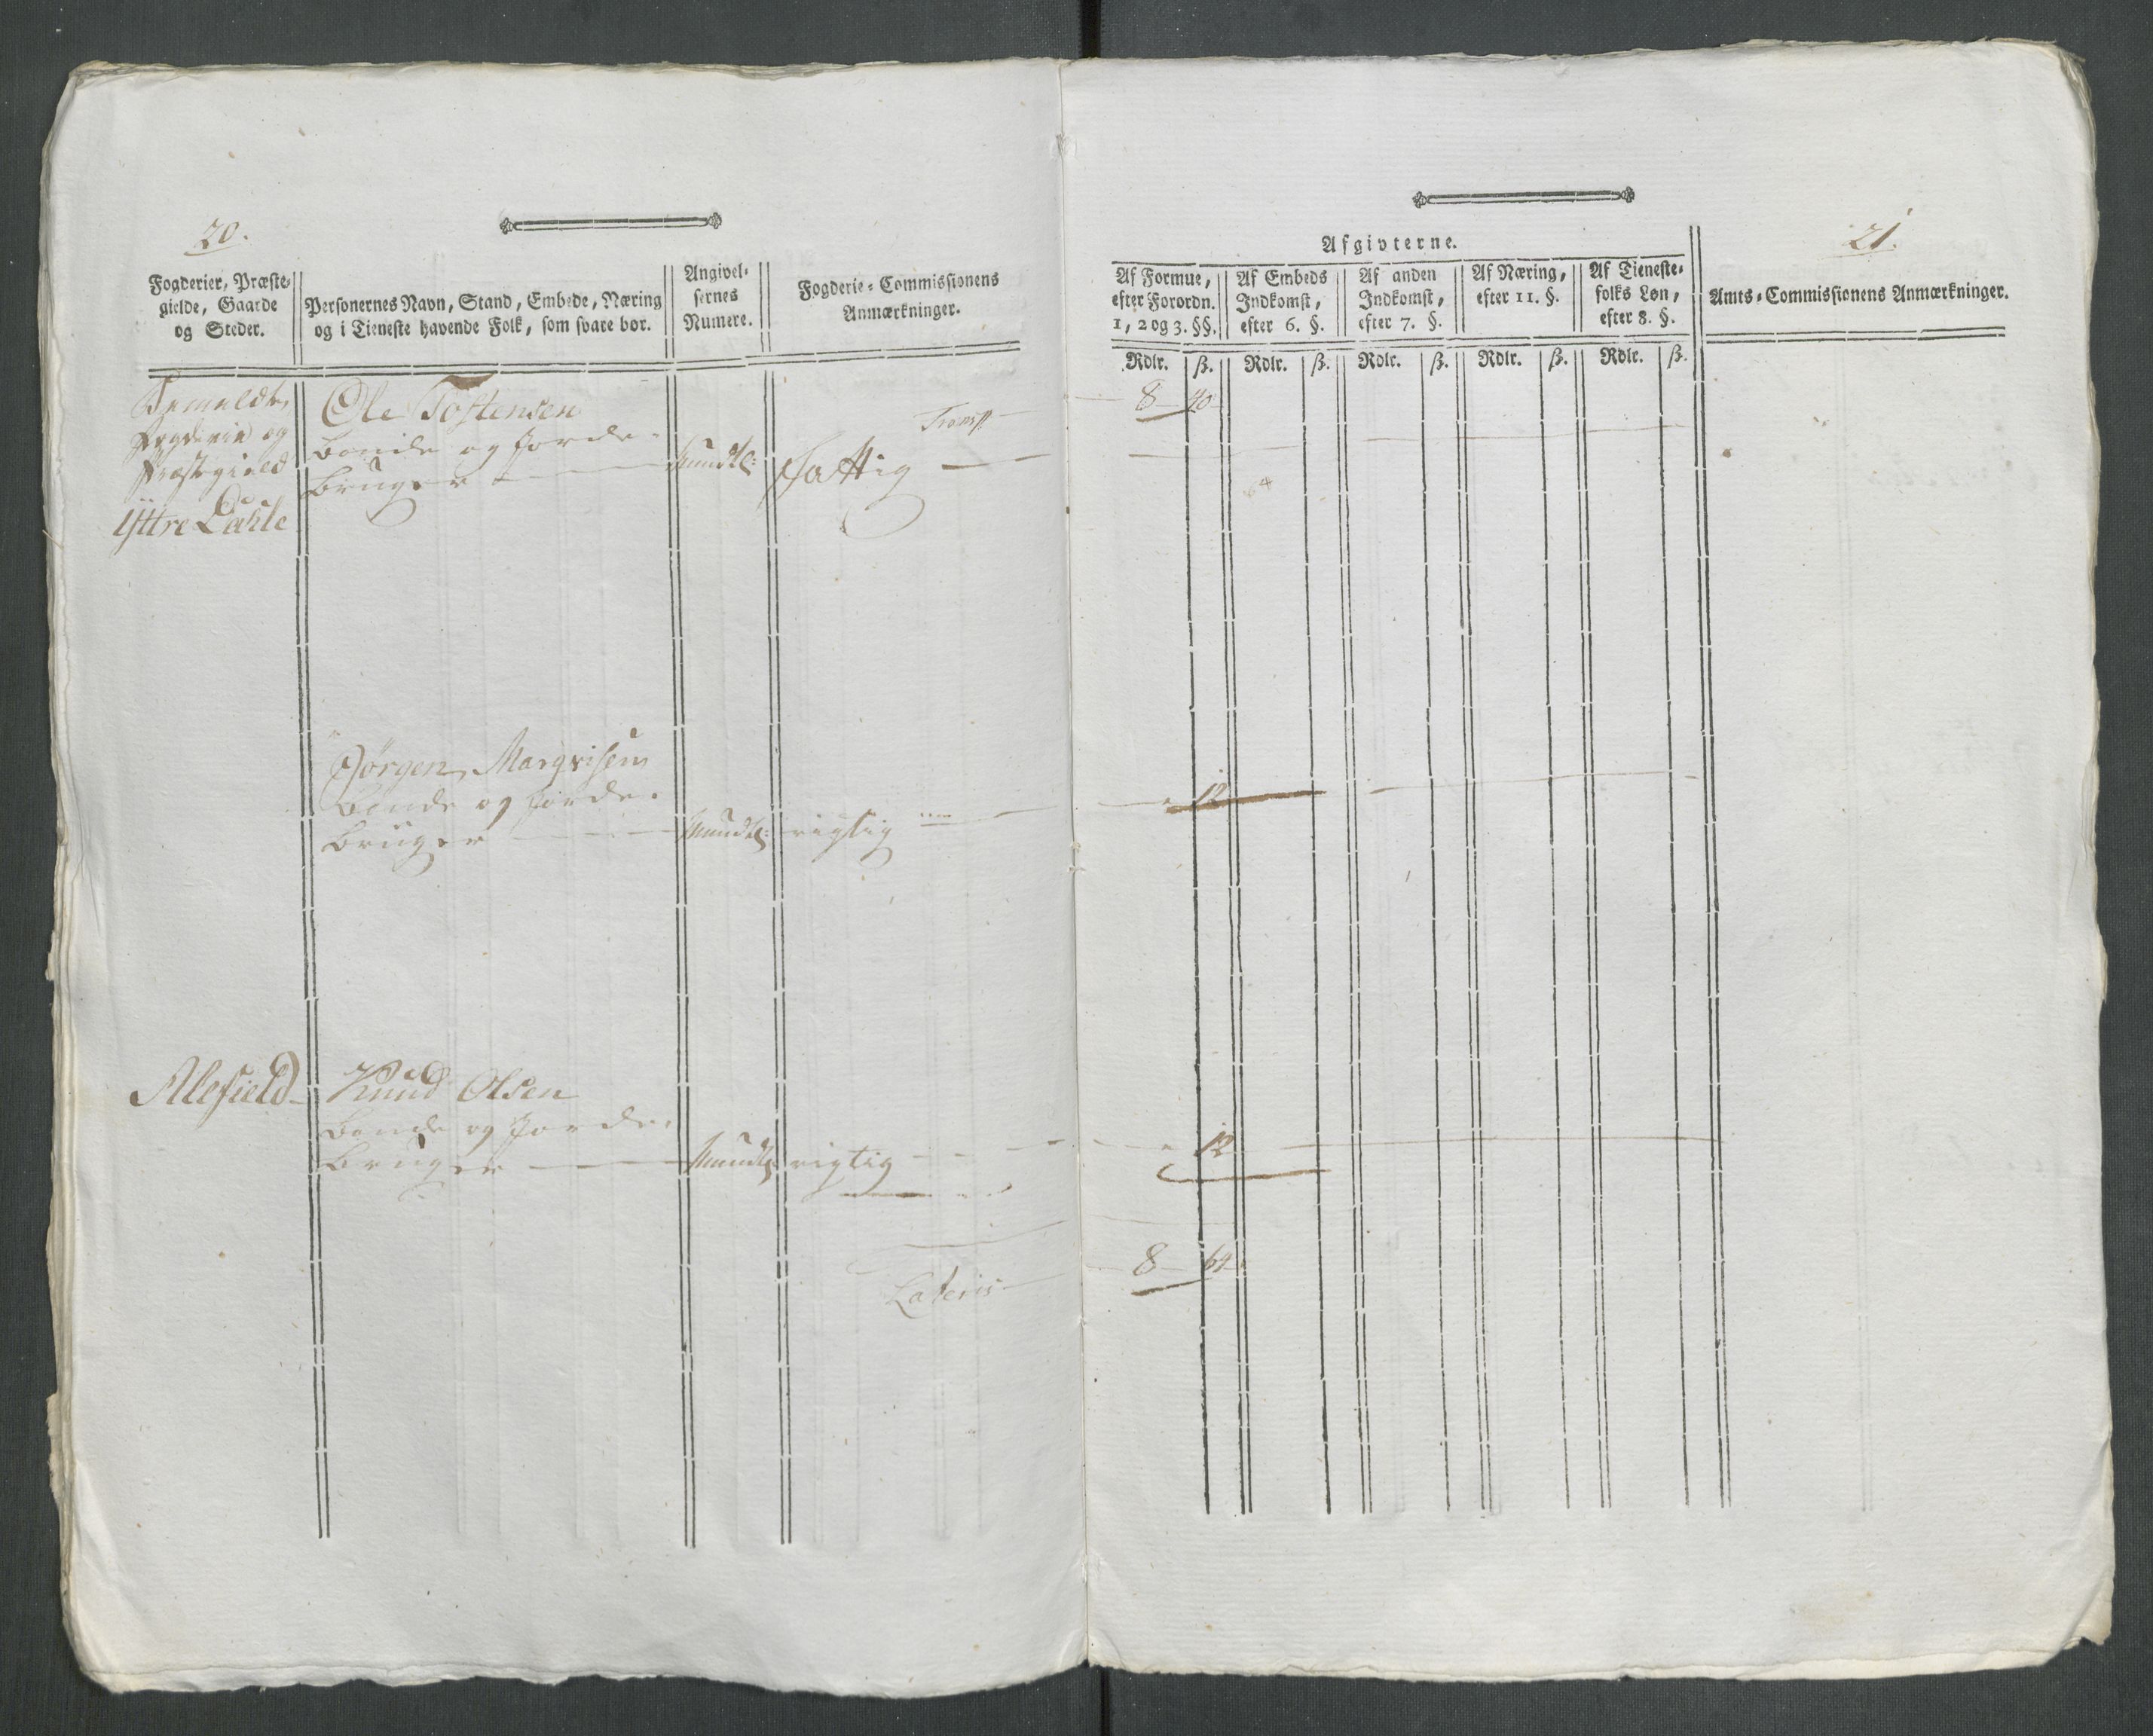 20.
Fogderier, Præste-
gielde, Gaarde
og Steder.
Personernes Navn, Stand, Embede, Næring
og i Tieneste havende Folk, som svare bør.
Angivel-
sernes
Numere.
Fogderie-Commissionens
Anmærkninger.
Bemeldte
Fogderie og
Præstegield
Yttre Dahle
Ole Tostensen
bonde og Jorde-
bruger
Mundtl:
Fattig
Transp
Jörgen Marqvisen
bonde og Jorde-
brüger
Mundtl:
rigtig
Alefield
Knud Olsen
bonde og Jorde-
bruger
Mundtl:
rigtig
Lateris
21.
Afgivterne.
Af Formue,
efter Forordn.
1, 2 og 3. §§.
Af Embeds
Indkomst,
efter 6. §.
Af anden
Indkomst,
efter 7. §.
Af Næring,
efter 11. §.
Af Tieneste-
folks Løn,
efter 8. §.
Amts-Commissionens Anmærkninger.
Rdlr. ß. Rdlr. ß. Rdlr. ß. Rdlr. ß. Rdlr. ß.
8 40
64
" 12
" 12
8 64